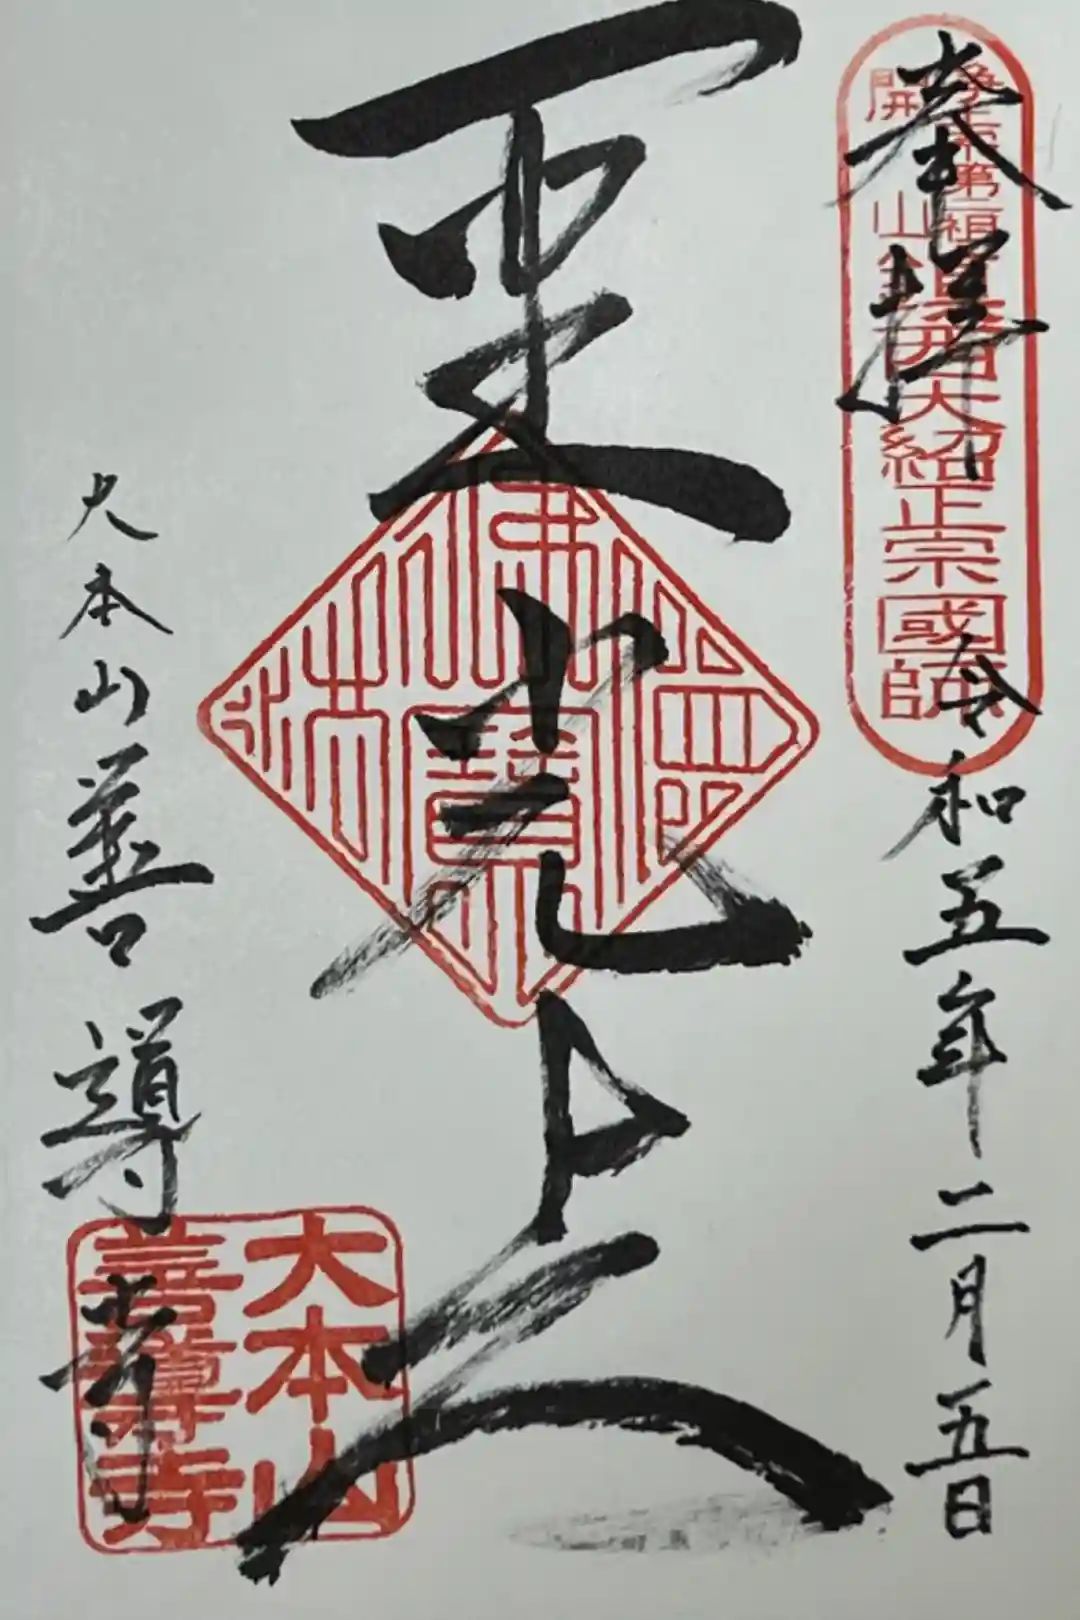 奉拝
令和五年二月五日
浄土宗第二祖
開山
鎮西大紹正宗國師
聖光上人
大本山善導寺
大本山
善導寺